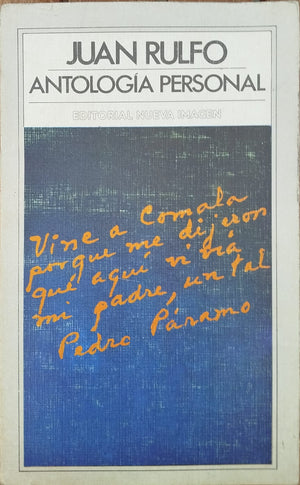 JUAN RULFO
ANTOLOGÍA PERSONAL
EDITORIAL NUEVA IMAGEN
Vine a Comala
porque me dijeron
que aquí vivía
mi padre, un tal
Pedro Páramo